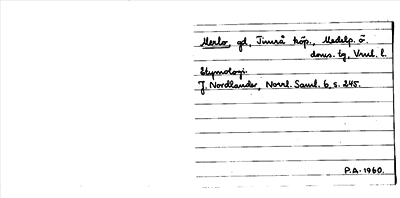 Merlo, gd, Timrå köp., Medelp. ö.
doms. tg, Vrul. l.
Etymologi.
J. Nordlander, Norrl. Saml. 6, s. 245.
P.A. 1960.